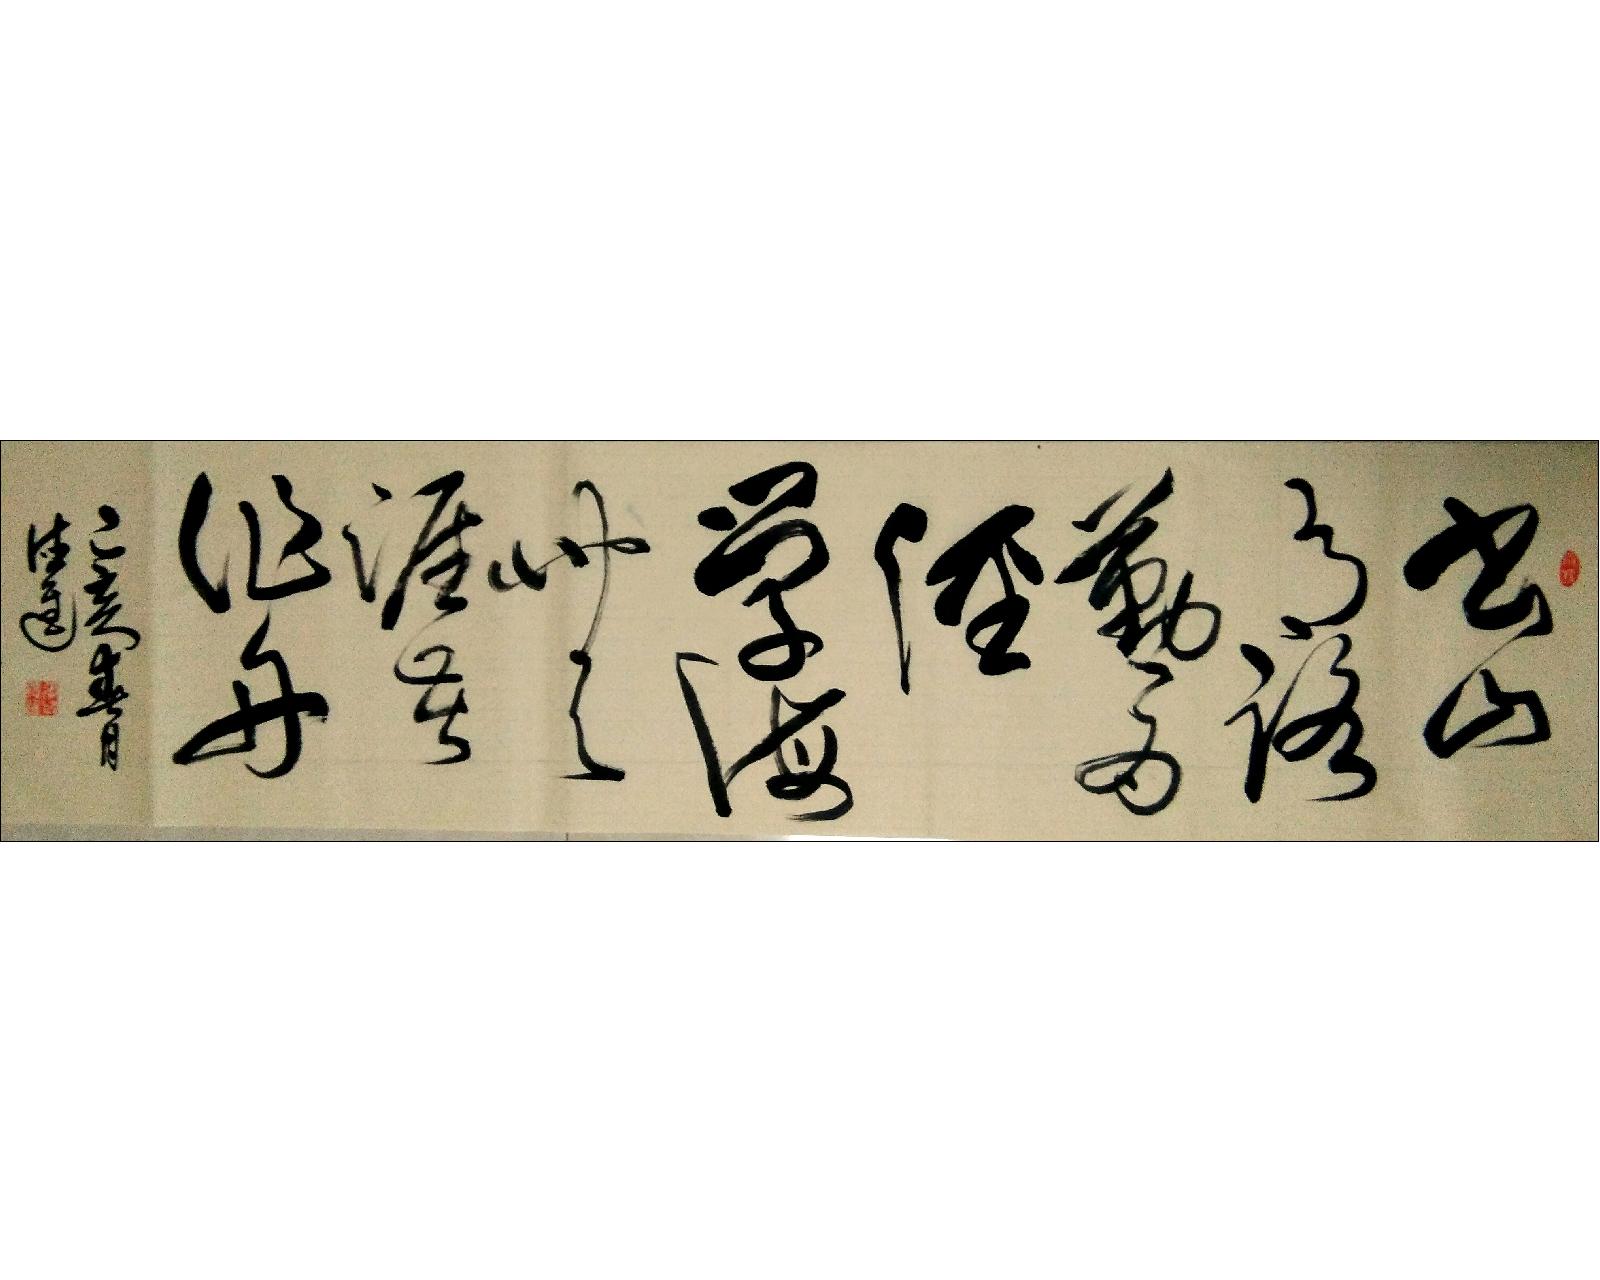 书山
有路
勤为
径
学海
无
涯苦
作舟
己亥春月